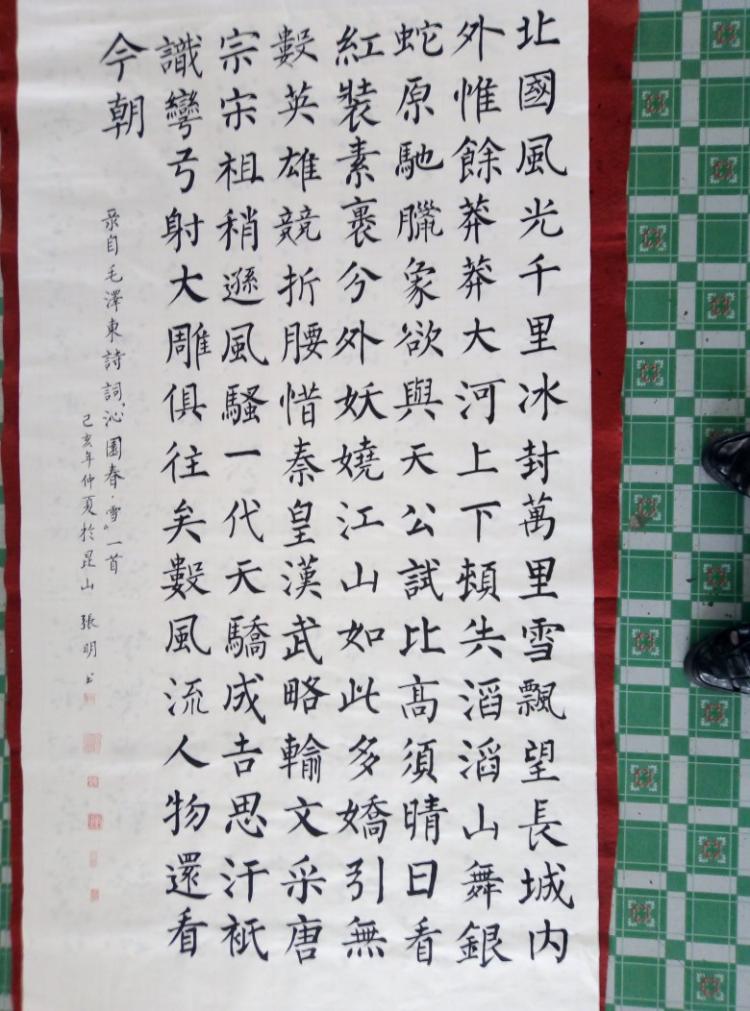 北國風光千里冰封萬里雪飄望長城内
外惟餘莽莽大河上下頓失滔滔山舞銀
蛇原馳臘象欲與天公試比高須晴日看
紅裝素裹兮外妖嬈江山如此多嬌引無
數英雄競折腰惜秦皇漢武略輸文采唐
宗宋祖稍遜風騷一代天驕成吉思汗祇
識彎弓射大雕俱往矣數風流人物還看
今朝
录自毛澤東詩詞“沁園春·雪”一首
己亥年仲夏於昆山 張明